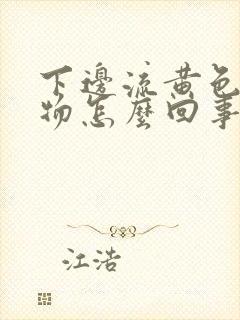 下邊流黃色
物怎麼回事
江浩